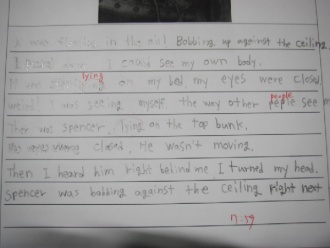 I was floating in the air! Bobbing up against the ceiling
I could see my own body.
lying
on my bed my eyes were closed
I was seeing myself the way other peple see m
people
Ther was spencer, lying on the top bunk.
closed, He wasn't moving.
Then I heard him right behind me I turned my head.
Spencer was bobbing against the ceiling right next
7:59